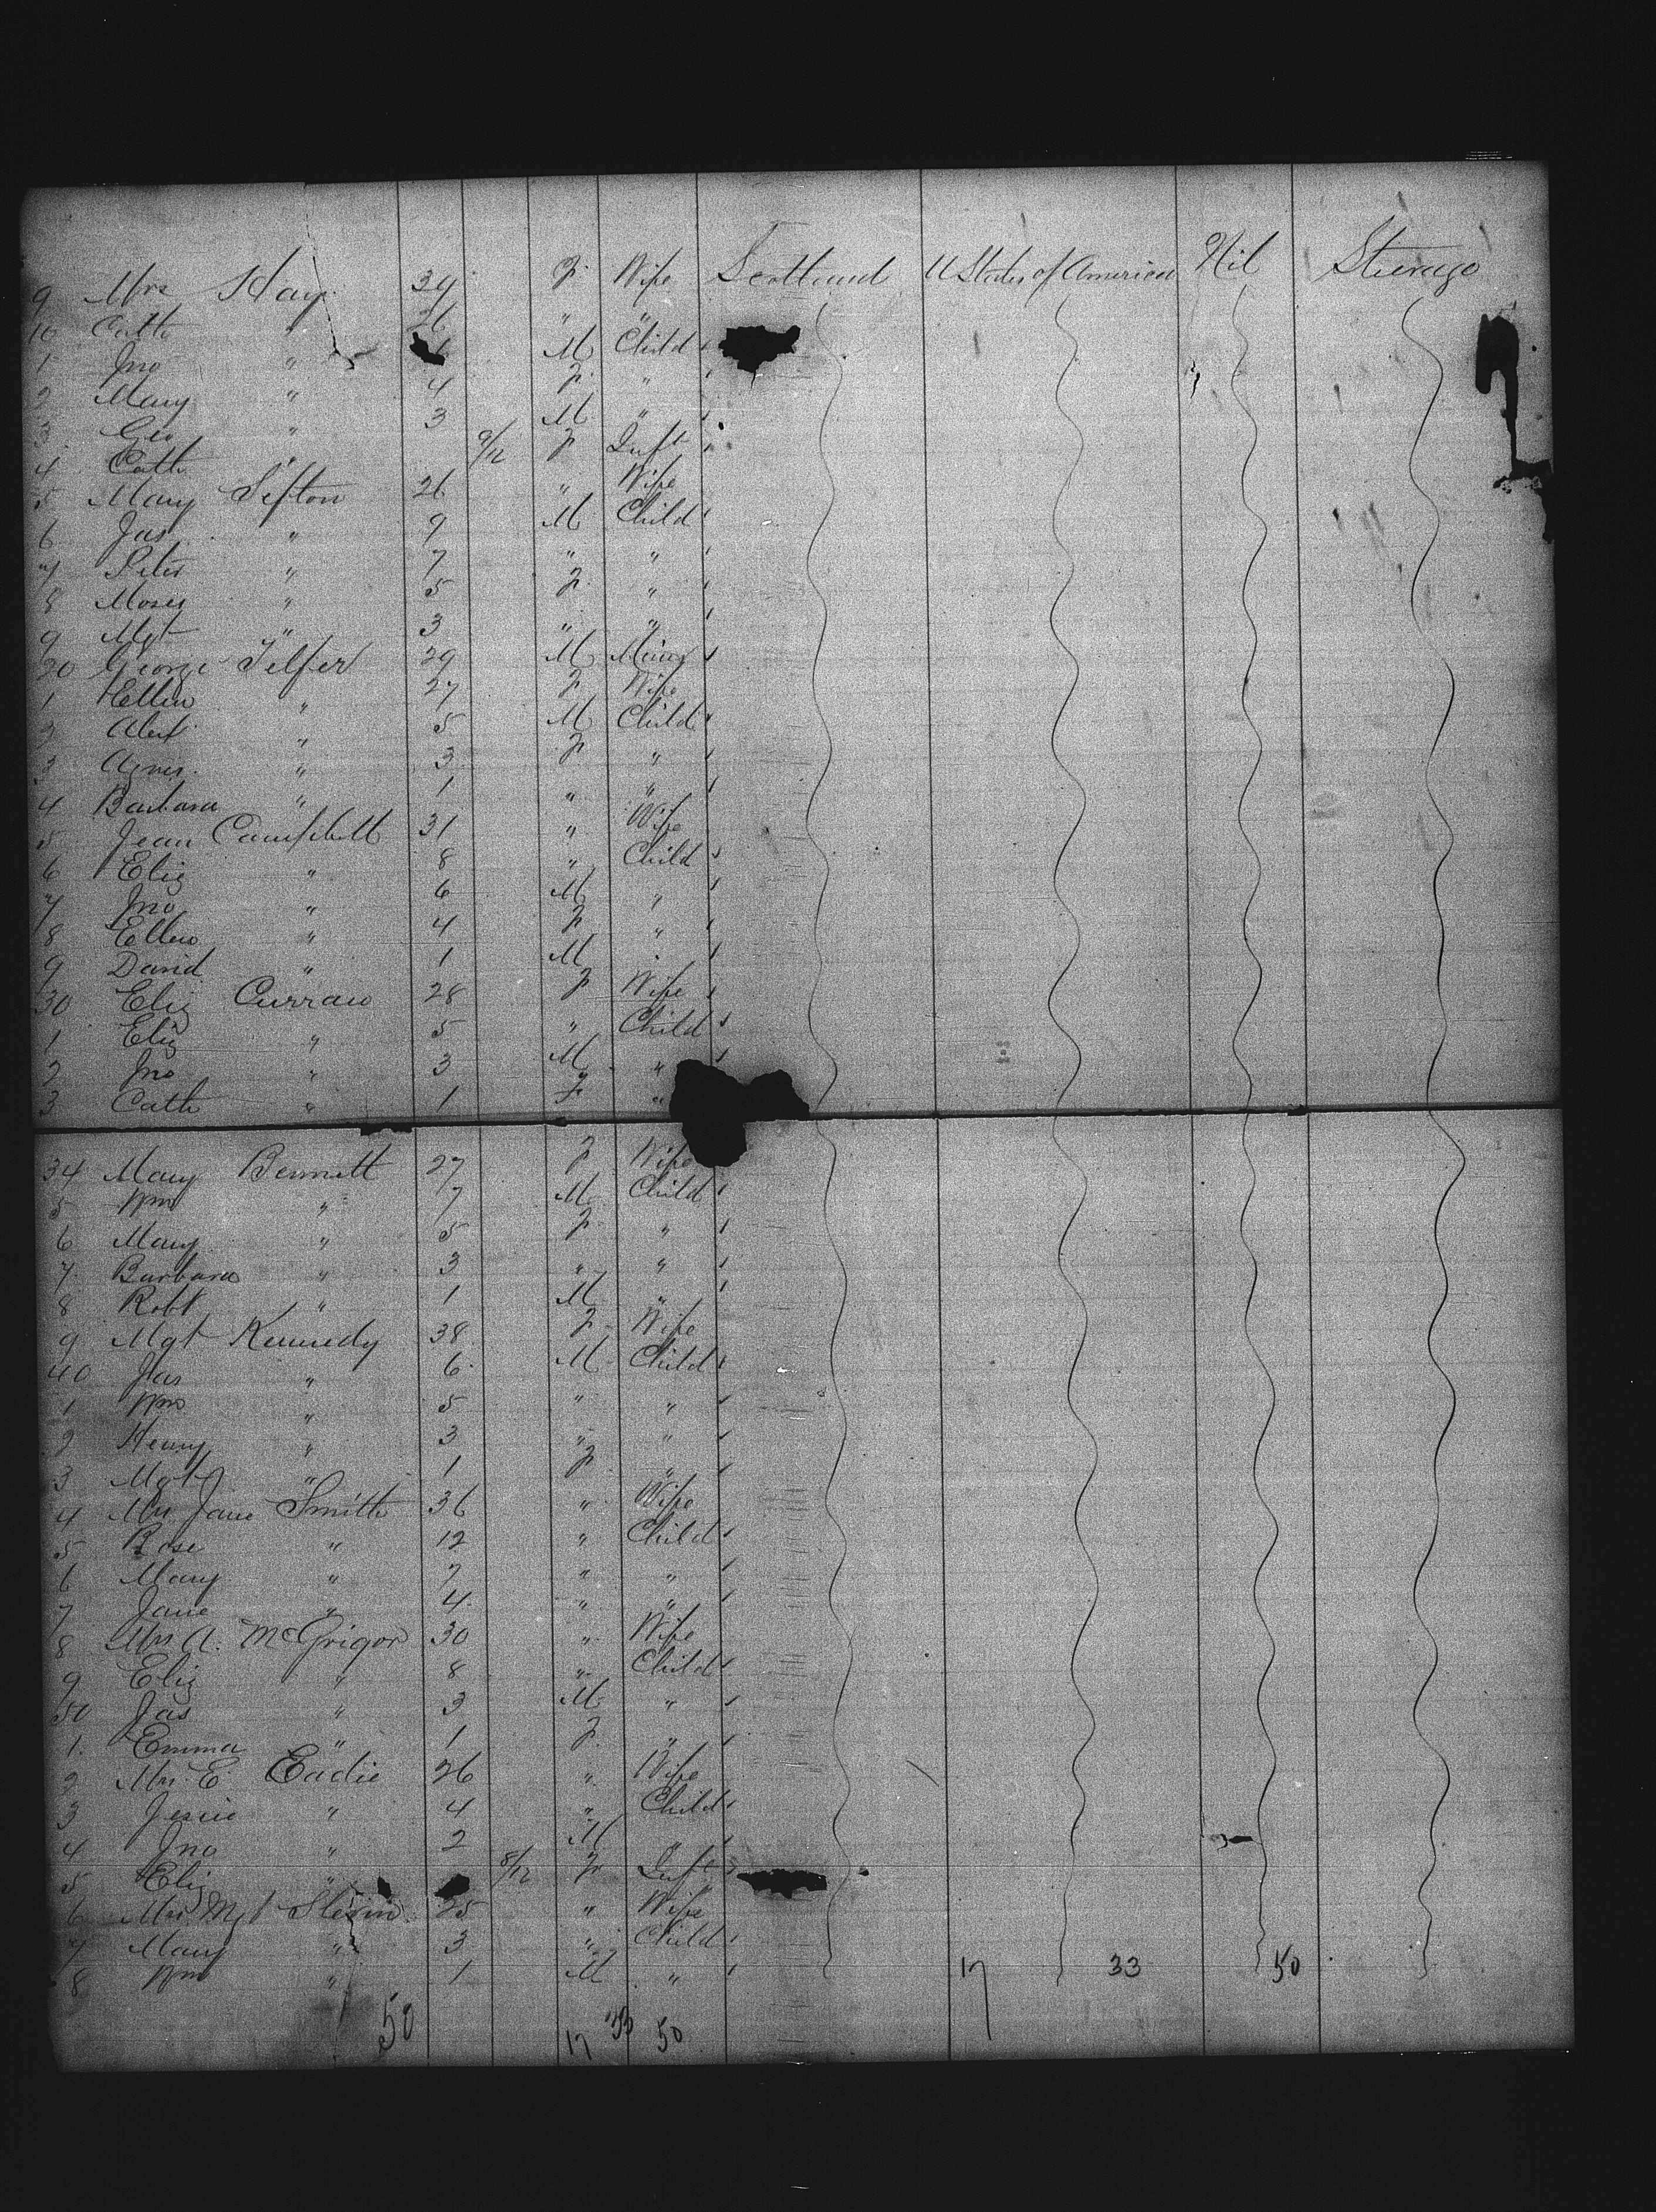 9 Mrs Hay 39 F Wife Scotland U States of America Nil Steerage
10 Cath " 26 " "
1 Jno " M Child
2 Mary " 4 F "
3 Geo " 3 M "
4 Cath " 9/12 F Inft "
5 Mary Sefton 26 " Wife
6 Jas " 9 M Child
7 Peter " 7 " "
8 Moses " 5 F "
9 Mgt " 3 " "
20 George Telfer 29 M Miner
1 Ellen " 27 F Wife
2 Alex " 5 M Child
3 Agnes " 3 F "
4 Barbara " 1 " "
5 Jean Campbell 31 " Wife
6 Eliz " 8 " Child
7 Jno " 6 M "
8 Ellen " 4 F "
9 David " 1 M "
30 Eliz Curran 28 F Wife
1 Eliz " 5 " Child
2 Jno " 3 M "
3 Cath " 1 F "
34 Mary Bennett 27 F Wife
5 Wm " 7 M Child
6 Mary " 5 F "
7 Barbara " 3 " "
8 Robt " 1 M "
9 Mgt Kennedy 38 F Wife
40 Jas " 6 M Child
1 Wm " 5 " "
2 Henry " 3 " "
3 Mgt " 1 F "
4 Mrs Jane Smith 36 " Wife
5 Rose " 12 " Child
6 Mary " 7 " "
7 Jane " 4 " "
8 Mrs A. McGrigor 30 " Wife
9 Eliz " 8 " Child
50 Jas " 3 M "
1 Emma " 1 F "
2 Mrs E. Eadie 26 " Wife
3 Jessie " 4 " Child
4 Jno " 2 M "
5 Eliz " 8/12 F Inft
6 Mrs Mgt Slevin 25 " Wife
7 Mary " 3 " Child
8 Wm " 1 M " 17 33 50
50 17 33 50